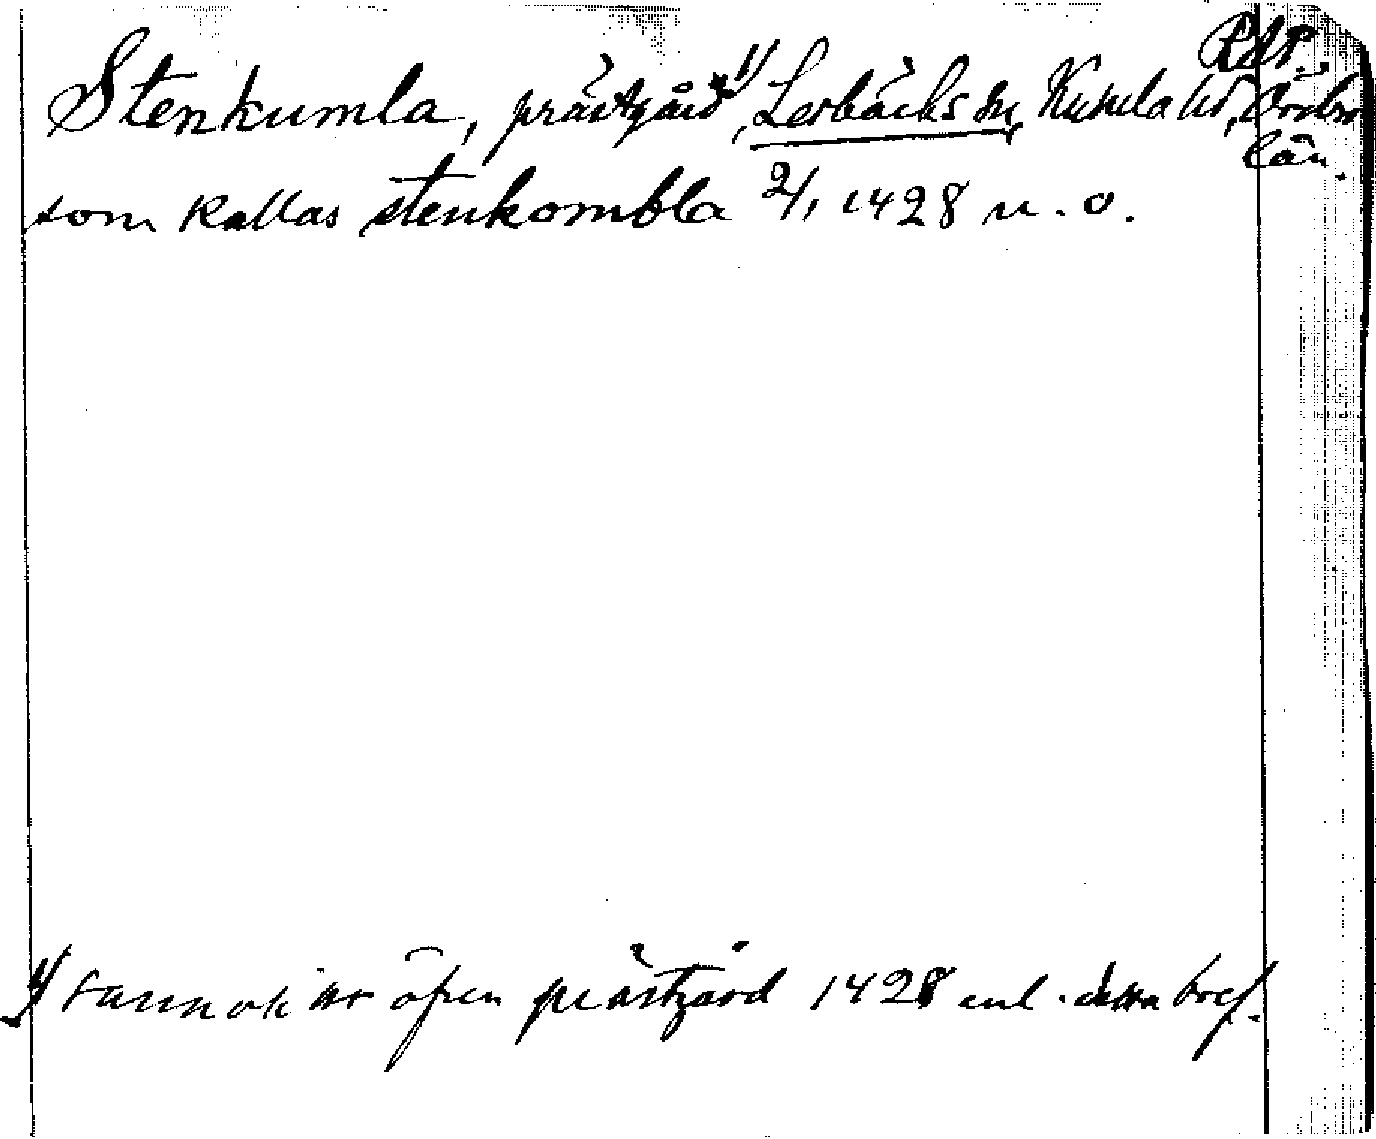 RAP.
Stenkumla, prästgård 1), Lerbäcks sn, Kumla hd, Örebro
län.
som kallas stenkombla 2/1 1428 u. o.
1) sannol. är äfven prästgård 1428 enl. detta bref.